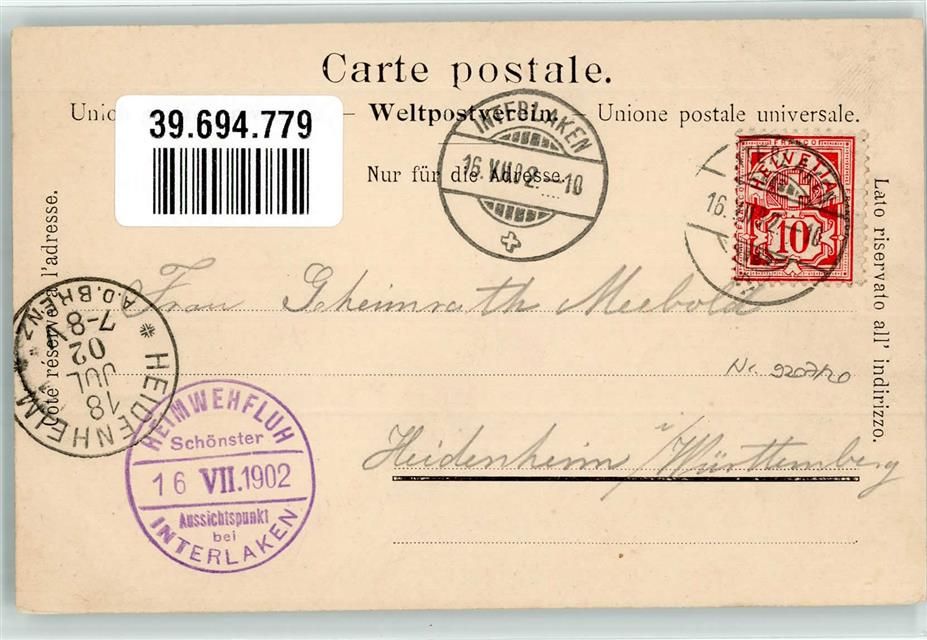 Carte postale.
Weltpostverein. Unione postale universale.
39.694.779
Nur für die Adresse.
INTERLAKEN
16.VII.02.-10
FRANCO
HELVETIA
10
Côté réservé à l'adresse.
Lato riservato all' indirizzo.
Frau Geheimrath Meebold
Nr. 9207/20
HEIDENHEIM
A.D.BRENZ
18
JUL
02
7-8
HEIMWEHFLUH
Schönster
16 VII.1902
Aussichtspunkt
bei
INTERLAKEN
Heidenheim i/Württemberg